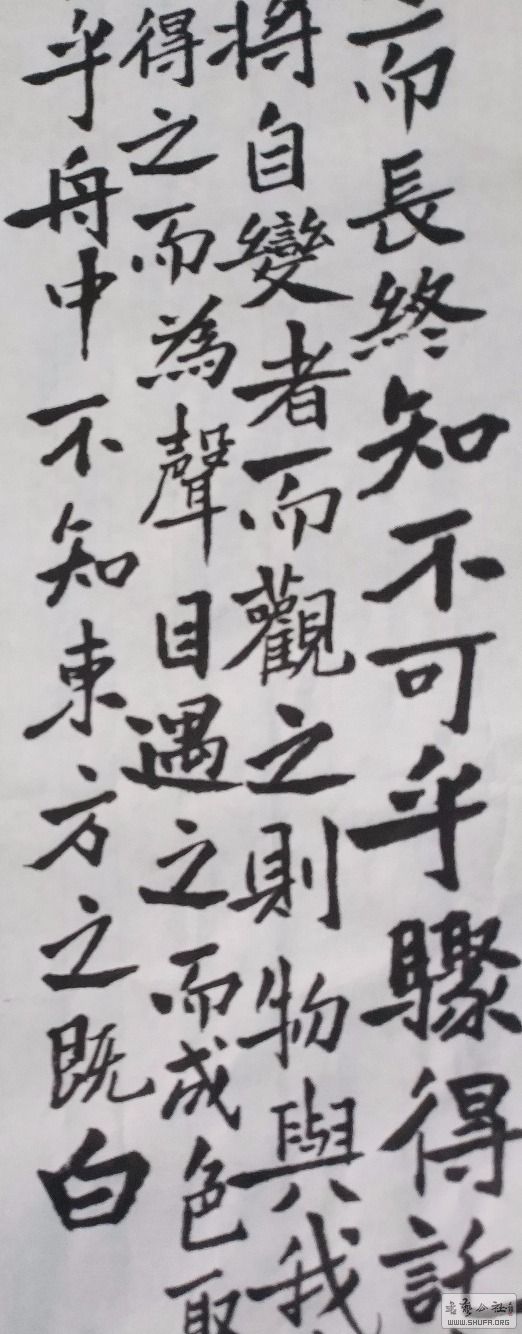 而長終知不可乎驟得託
將自變者而觀之則物與我
得之而為聲目遇之而成色取
乎舟中不知東方之既白
WWW.SHUFA.ORG